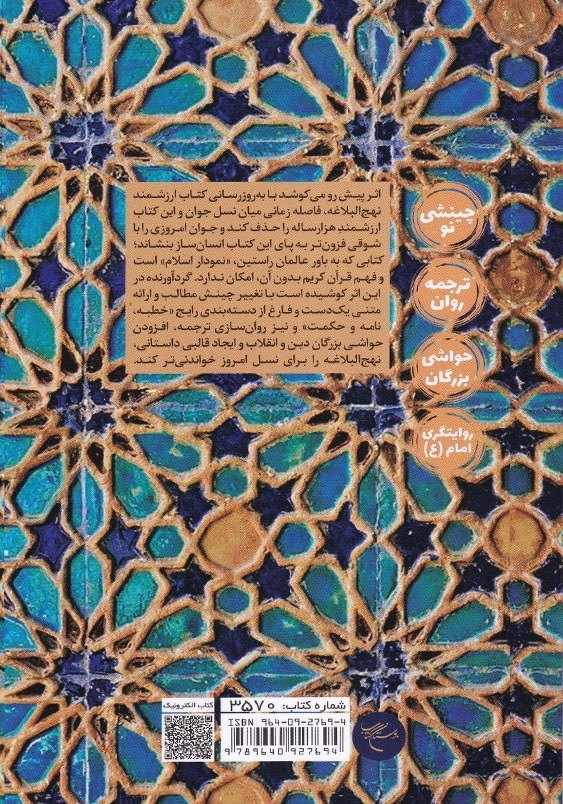 اثر پیش رو می‌کوشد با به‌روزرسانی کتاب ارزشمند
نهج‌البلاغه، فاصله زمانی میان نسل جوان و این کتاب
ارزشمند هزارساله را حذف کند و جوان امروزی را با
شوقی فزون‌تر به پای این کتاب انسان‌ساز بنشاند؛
کتابی که به باور عالمان راستین، «نمودار اسلام» است
و فهم قرآن کریم بدون آن، امکان ندارد. گردآورنده در
این اثر کوشیده است با تغییر چینش مطالب و ارائه
متنی یک‌دست و فارغ از دسته‌بندی رایج «خطبه،
نامه و حکمت» و نیز روان‌سازی ترجمه، افزودن
حواشی بزرگان دین و انقلاب و ایجاد قالبی داستانی،
نهج‌البلاغه را برای نسل امروز خواندنی‌تر کند.
چینشی
نو
ترجمه
روان
حواشی
بزرگان
روایتگری
امام (ع)
شماره کتاب: ۳۵۷۰
کتاب الکترونیک
ISBN 964-09-2769-4
9789640927694
بوستان کتاب